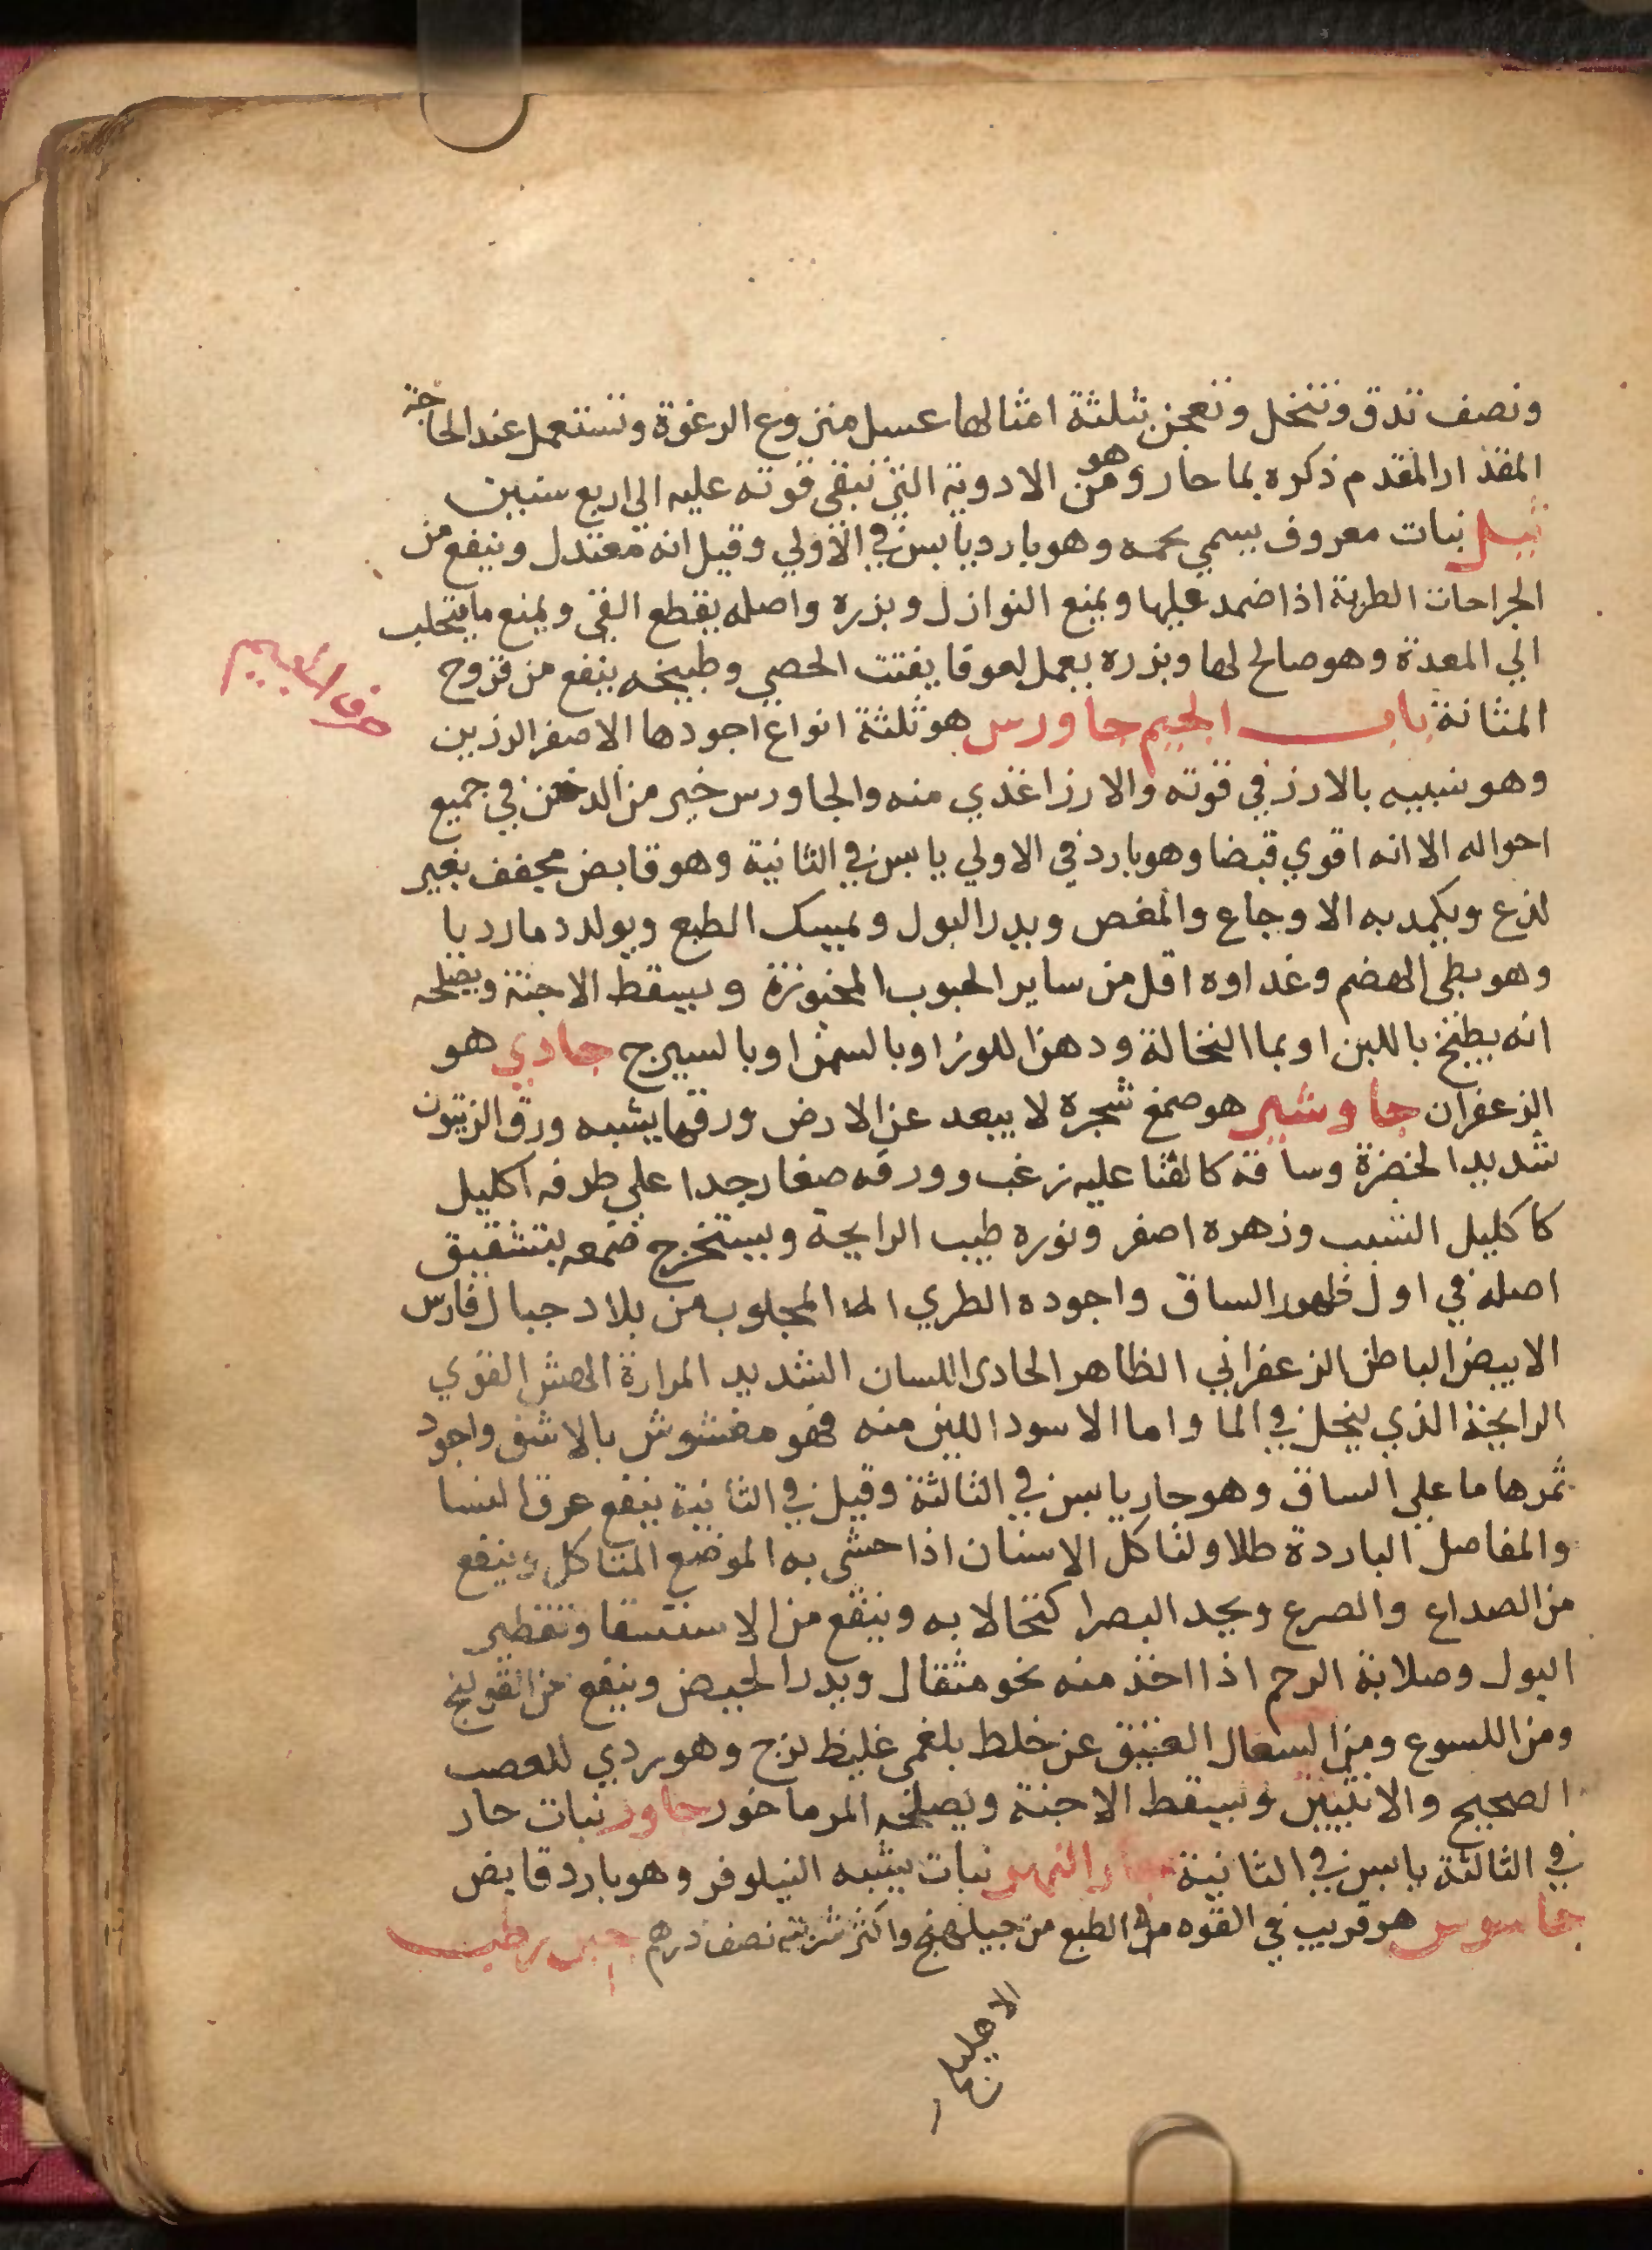 ونصف تدق وتنخل وتعجن بثلثة امثالها عسل منزوع الرغوة وتستعمل عند الحاجة
المقدار المقدم ذكره بما حار وهو من الادوية التي تبقى قوته عليه الي اربع سنين
ثيل نبات معروف يسمي نجمه وهو بارد يابس في الاولي وقيل انه معتدل وينفع من
الجراحات الطرية اذا ضمد عليها ويمنع النوازل وبزره واصله يقطع القي ويمنع ما يتحلب
الي المعدة وهو صالح لها وبزره يعمل لعوقا يفتت الحصي وطبيخه ينفع من قروح
حرف الجيم
المثانة باب الجيم جاورس هو ثلثة انواع اجودها الاصفر الرزين
وهو شبيه بالارز في قوته والارز اغذي منه والجاورس خير من الدخن في جميع
احواله الا انه اقوي قبضا وهو بارد في الاولي يابس في الثانية وهو قابض مجفف بغير
لذع ويكمد به الاوجاع والمغص ويدر البول ويمسك الطبع ويولد دما رديا
وهو بطي الهضم وغداوه اقل من ساير الحبوب المخبوزة ويسقط الاجنة ويصلحه
انه يطبخ باللبن او بما النخالة ودهن اللوز او بالسمن او بالسيرج جادي هو
الزعفران جاوشير هو صمغ شجرة لا يبعد عن الارض ورقها يشبه ورق الزيتون
شديد الخضرة وساقه كالقنا عليه زغب وورقه صغار جدا علي طرفه اكليل
كاكليل الشبب وزهره اصفر ونوره طيب الرايحة ويستخرج صمغه بتشقيق
اصله في اول ظهور الساق واجوده الطري المجلوب من بلاد جبال فارس
الابيض الباطن الزعفراني الظاهر الحادي اللسان الشديد المرارة الهش القوي
الرايحة الذي ينحل في الما واما الاسود اللين منه فهو مغشوش بالاشق واجود
ثمرها ما علي الساق وهو حار يابس في الثالثة وقيل في الثانية ينفع عرق النسا
والمفاصل الباردة طلا ولتاكل الاسنان اذا حشي به الموضع المتاكل وينفع
من الصداع والصرع ويحد البصر اكتحالا به وينفع من الاستسقا وتقطير
البول وصلابة الرحم اذا اخذ منه نحو مثقال ويدر الحيض وينفع من القولنج
ومن اللسوع ومن السعال العتيق عن خلط بلغمي غليظ لزج وهو ردي للعصب
الصحيح والانثيين ويسقط الاجنة ويصلحه المرماخور جاور نبات حار
في الثالثة يابس في الثانية جار النهر نبات يشبه النيلوفر وهو بارد قابض
جاسوس هو قريب في القوه من الطبع من جبيلهنج واكثر شربته نصف درهم جبن رطب
الاهليلج